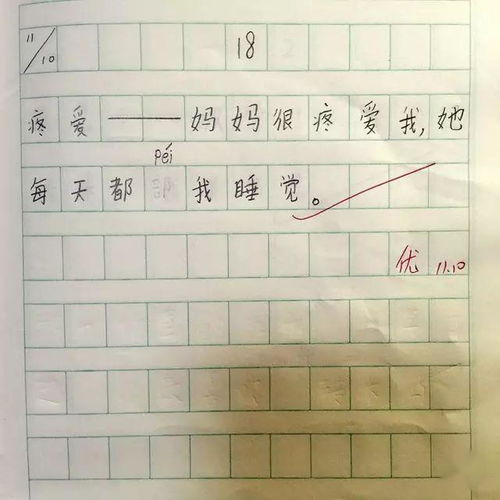 11/10 18
疼爱——妈妈很疼爱我,她
péi
每天都 我睡觉。
优 11.10